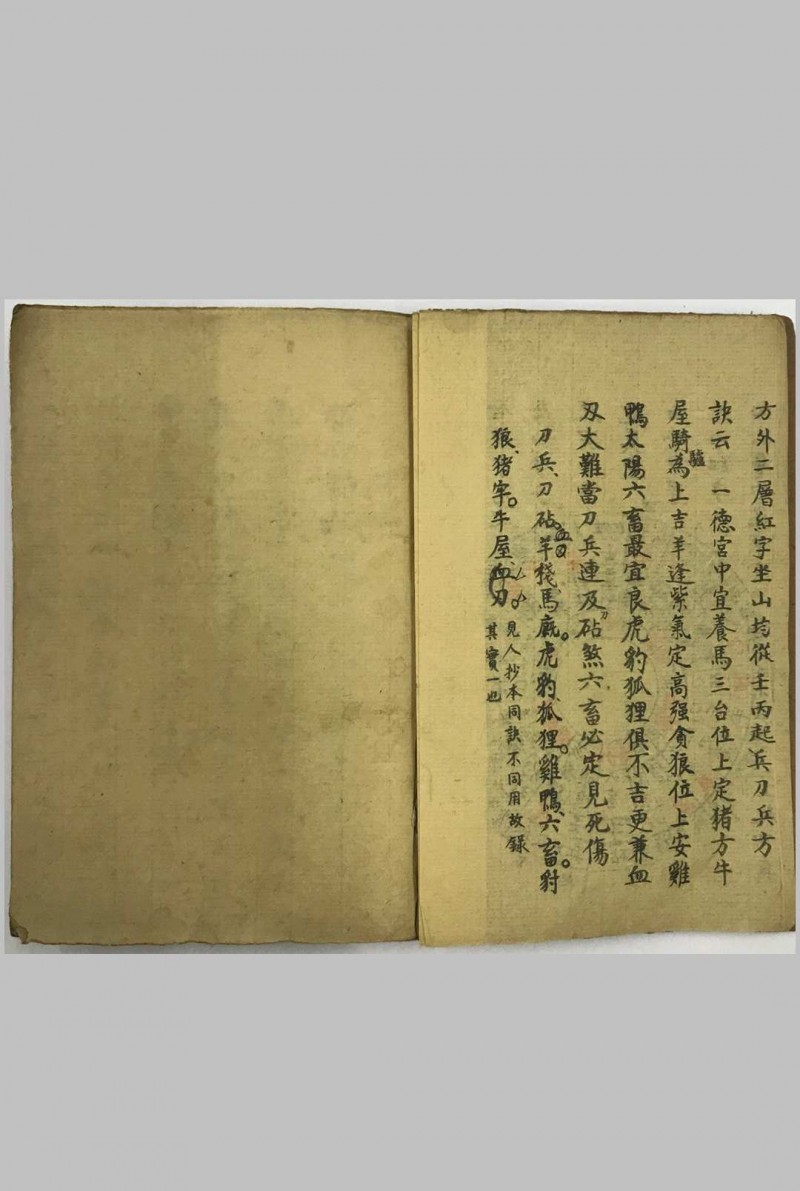 方外二層紅字坐山均從壬丙起兵刀兵方
訣云 一德宮中宜養馬三台位上定猪方牛
屋騎為上吉羊逢紫氣定高强貪狼位上安雞
驢
鴨太陽六畜最宜良虎豹狐狸俱不吉更兼血
刃大難當刀兵連及砧煞六畜必定見死傷
刀
刀兵、刀砧羊棧馬廐。虎豹、狐狸。雞鴨、六畜。豺
血刃
狼、猪牢。牛屋、血刃。
見人抄本同訣不同用故錄
其實一也